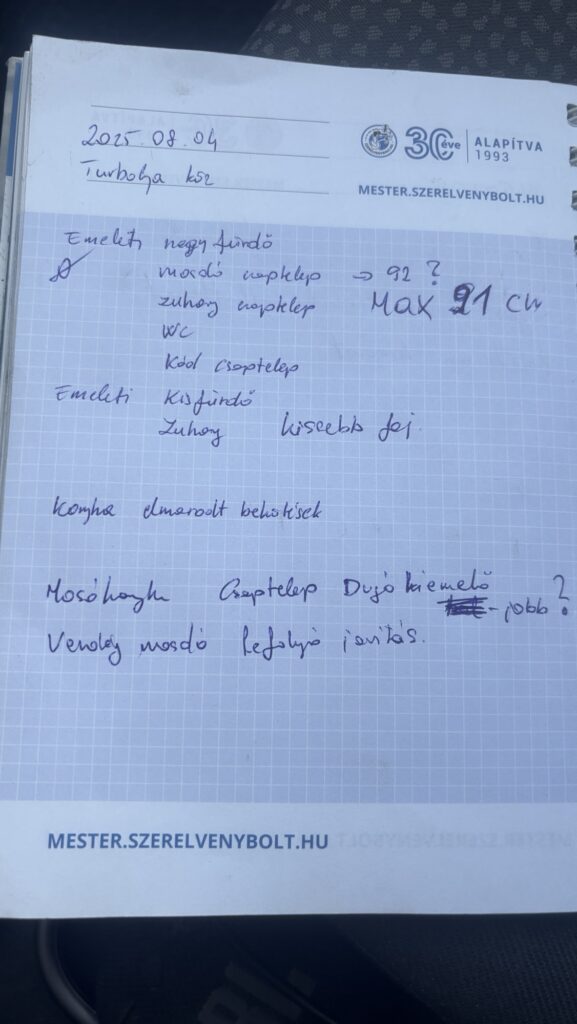 2025.08.04
30 éve ALAPÍTVA 1993
Turbolya ksz
MESTER.SZERELVENYBOLT.HU
Emeleti nagy fürdő
mosdó csaptelep → 92 ?
zuhany csaptelep MAX 91 cm
WC
Kád csaptelep
Emeleti Kisfürdő
Zuhany kissebb fej.
Konyha elmaradt bekötések
Mosókonyha Csaptelep Dugó kiemelő
- jobb ?
Vendég mosdó lefolyó javítás.
MESTER.SZERELVENYBOLT.HU